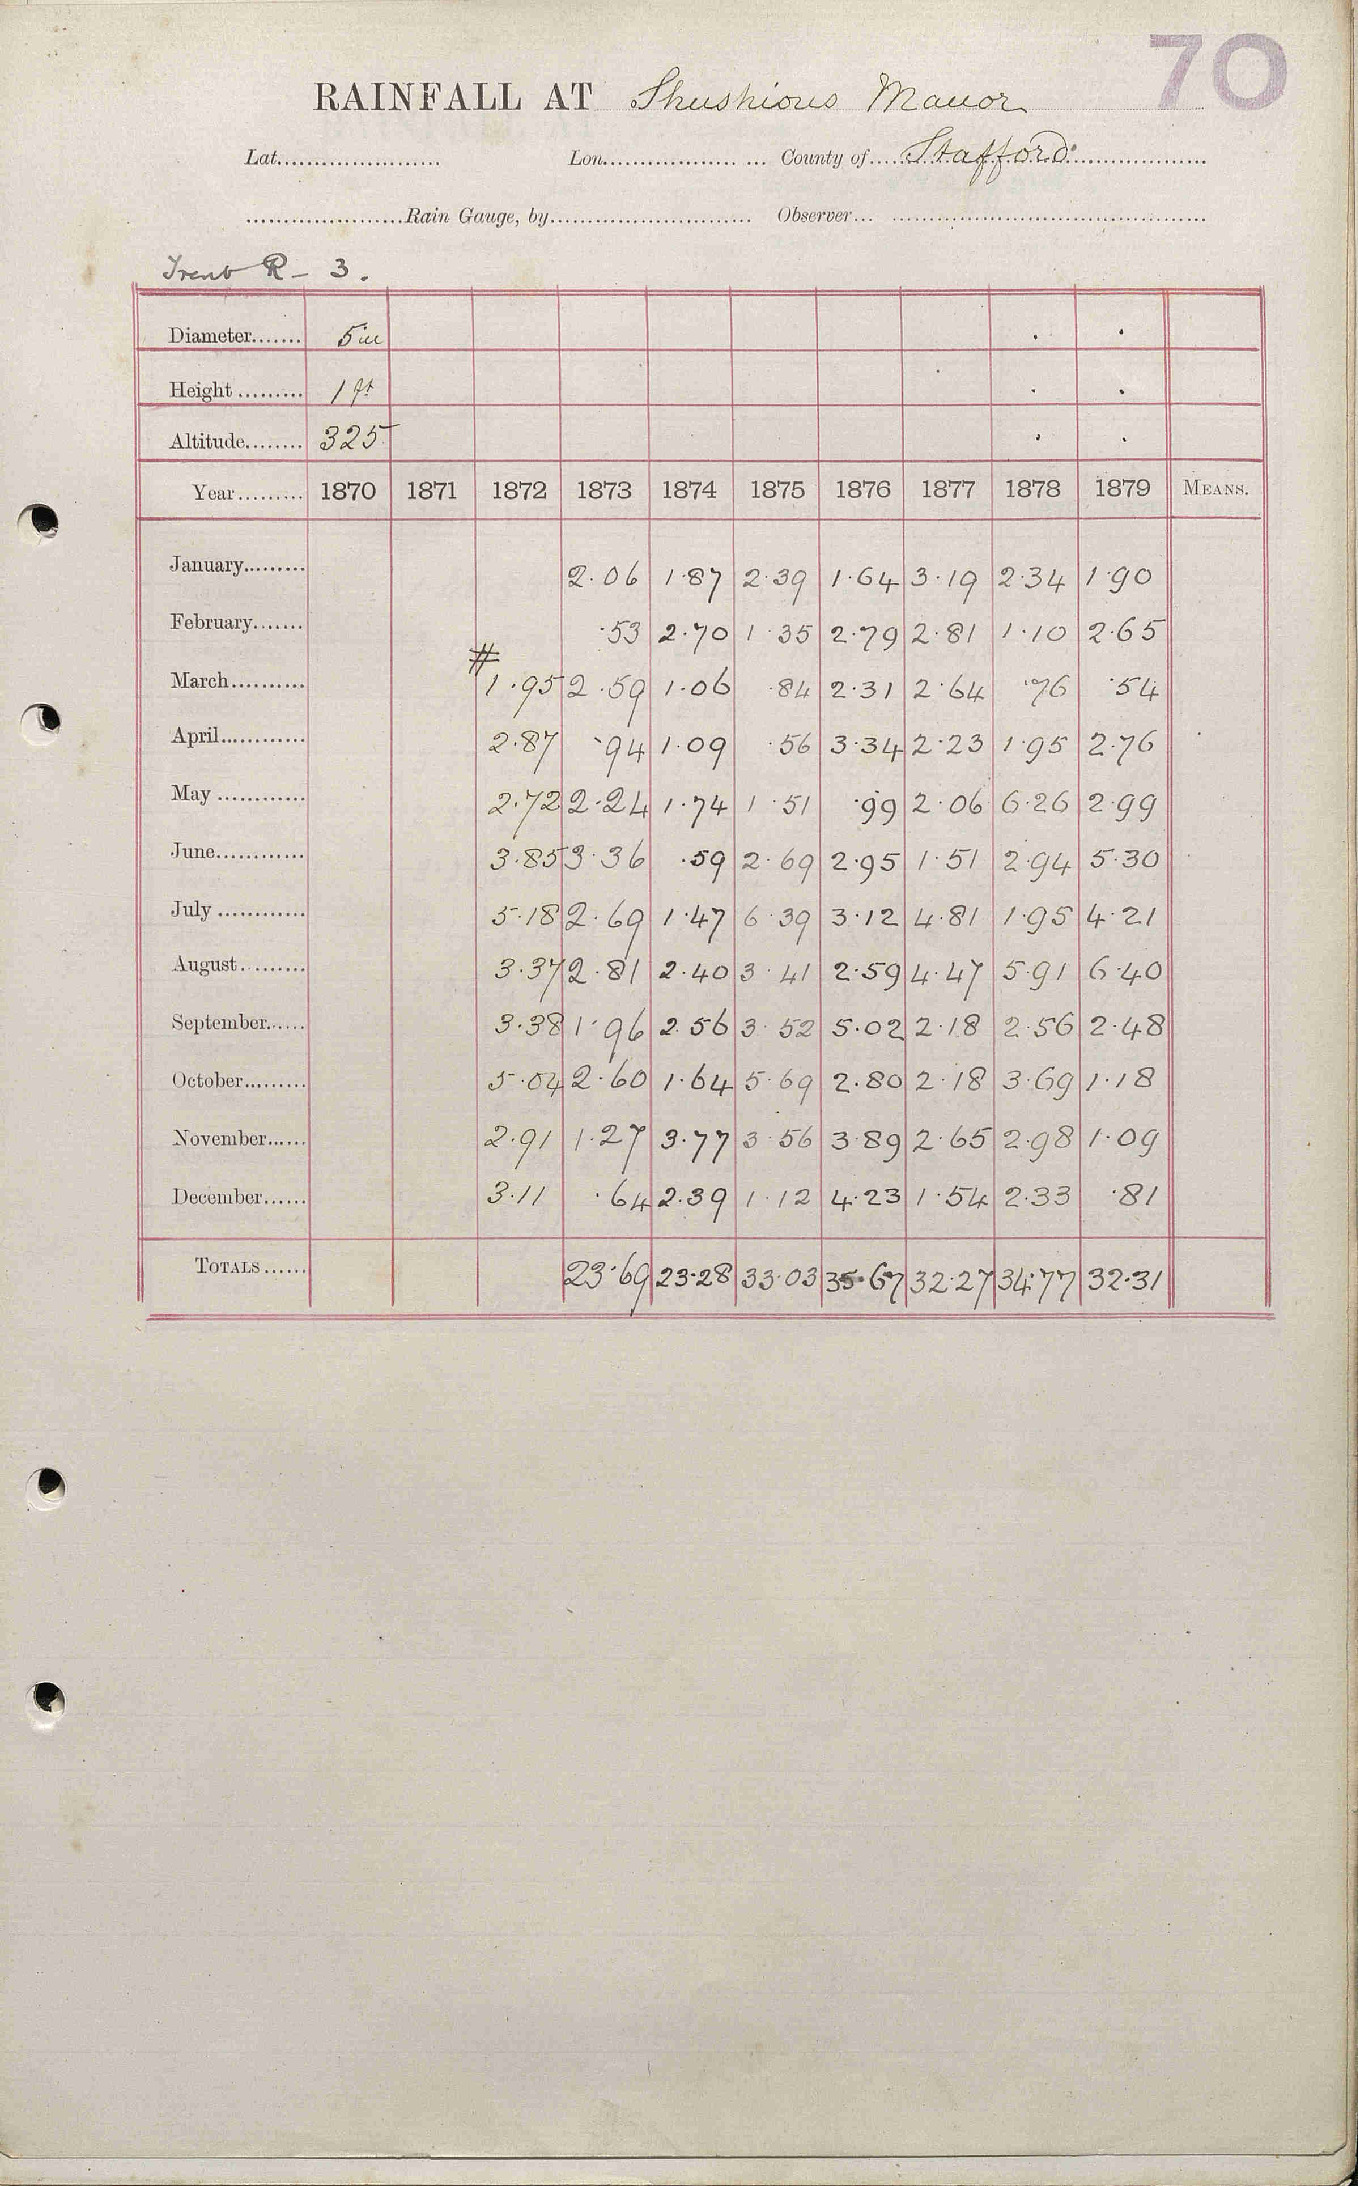 70
RAINFALL AT Shushions Manor
Lat...................... Lon..................... County of.... Stafford
.....................Rain Gauge, by........................... Observer... ..........................................
Trent R - 3.
Diameter....... 5in
Height ......... 1 ft
Altitude........ 325
Year......... 1870 1871 1872 1873 1874 1875 1876 1877 1878 1879 MEANS.
January......... 2.06 1.87 2.39 1.64 3.19 2.34 1.90
February....... .53 2.70 1.35 2.79 2.81 1.10 2.65
#
March.......... 1.95 2.59 1.06 .84 2.31 2.64 .76 .54
April............ 2.87 .94 1.09 .56 3.34 2.23 1.95 2.76
May ............ 2.72 2.24 1.74 1.51 .99 2.06 6.26 2.99
June............ 3.85 3.36 .59 2.69 2.95 1.51 2.94 5.30
July ............ 5.18 2.69 1.47 6.39 3.12 4.81 1.95 4.21
August......... 3.37 2.81 2.40 3.41 2.59 4.47 5.91 6.40
September...... 3.38 1.96 2.56 3.52 5.02 2.18 2.56 2.48
October......... 5.04 2.60 1.64 5.69 2.80 2.18 3.69 1.18
November...... 2.91 1.27 3.77 3.56 3.89 2.65 2.98 1.09
December...... 3.11 .64 2.39 1.12 4.23 1.54 2.33 .81
TOTALS...... 23.69 23.28 33.03 35.67 32.27 34.77 32.31